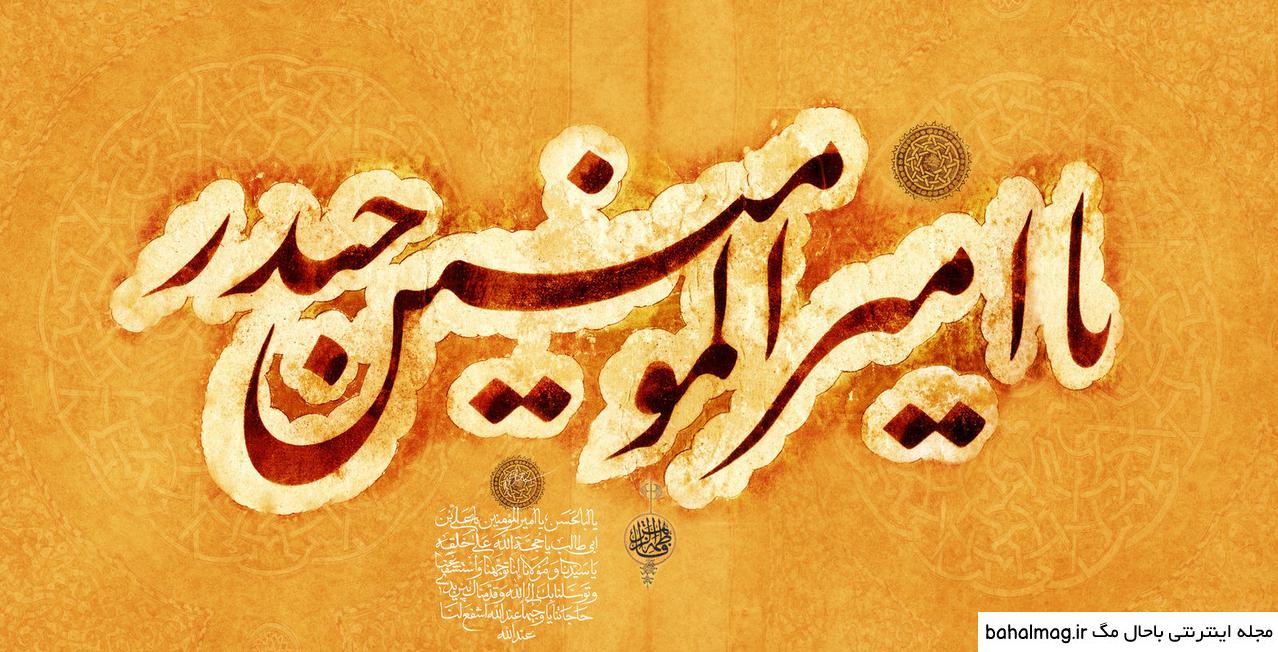 یا امیرالمومنین حیدر
یا اباالحسن یا امیرالمومنین یا علی بن
ابی طالب یا حجة الله علی خلقه
یا سیدنا و مولانا انا توجهنا واستشفعنا
و توسلنا بک الی الله و قدمناک بین یدی
حاجاتنا یا وجیها عندالله اشفع لنا
عندالله
مجله اینترنتی باحال مگ bahalmag.ir